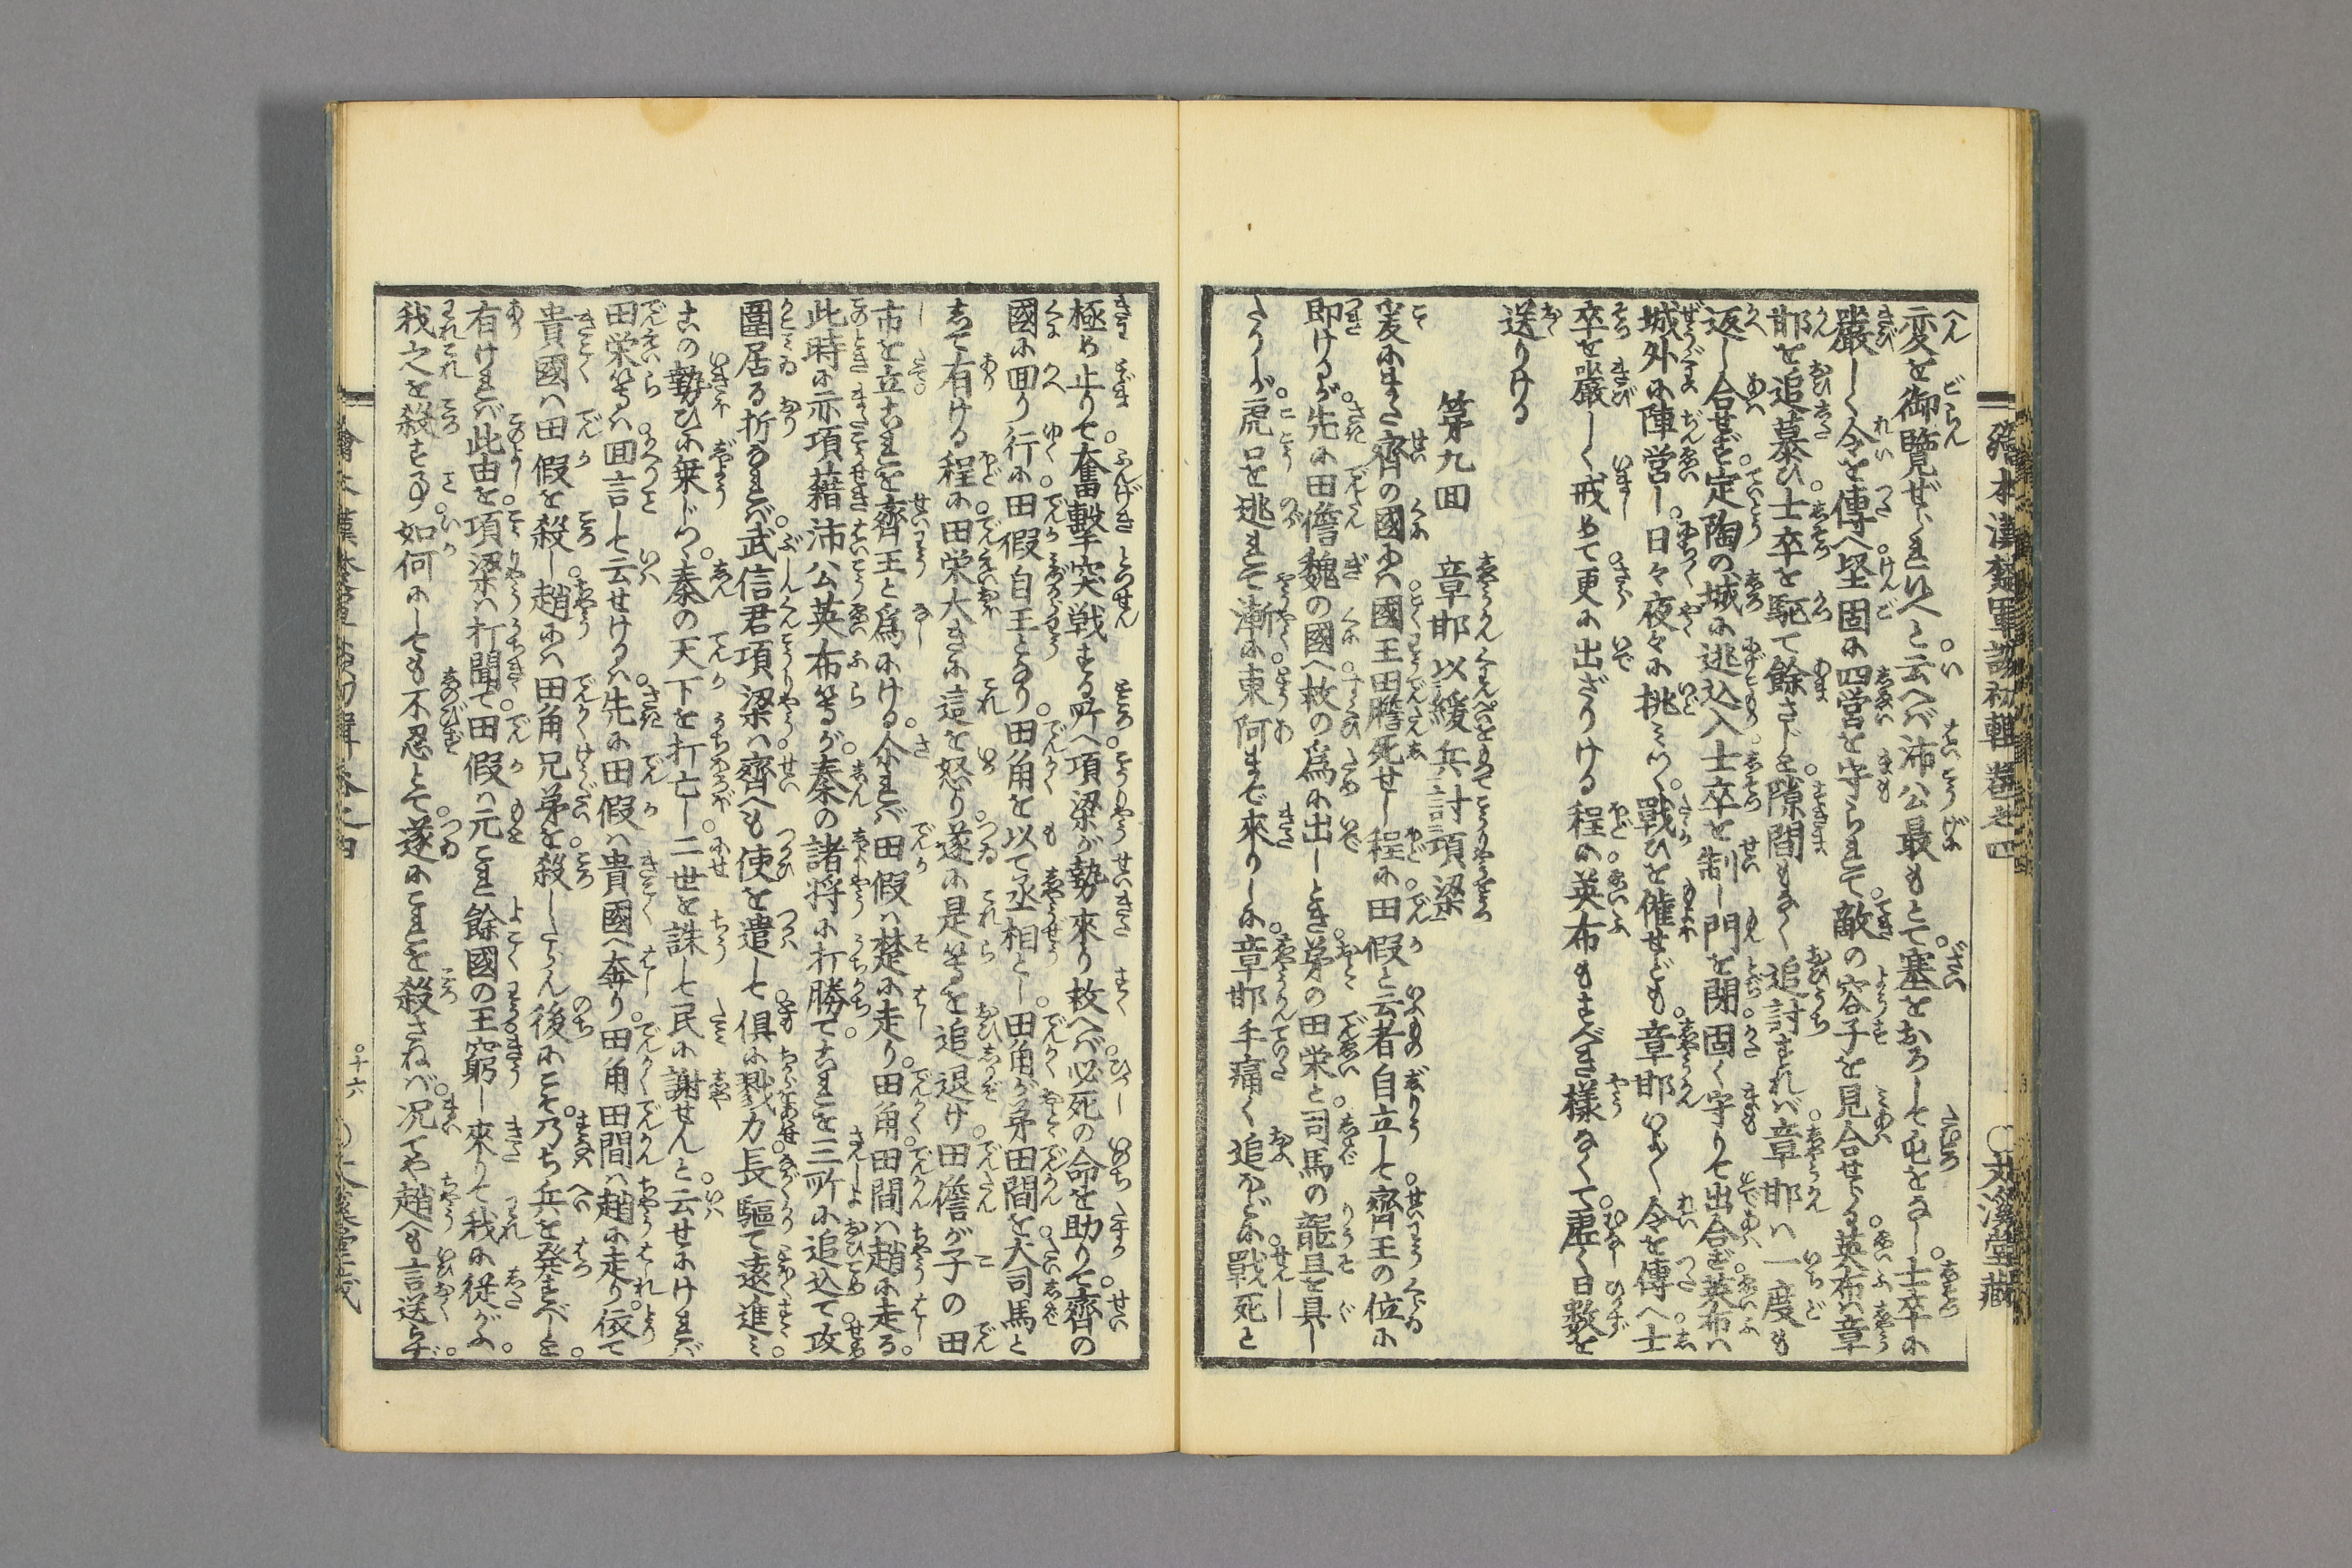 繪本漢楚軍談初輯 卷之四 ○文溪堂藏
変を御覧ぜられ候へと云へば沛公最もとて塞をおろして屯をなし士卒に
嚴しく令を傳へ堅固に四営を守られて敵の容子を見合せらる英布は章
邯を追慕ひ士卒を駈て餘さじと隙間もなく追討すれば章邯は一度も
返し合せず定陶の城に逃込入士卒を制し門を閉固く守りて出合ず英布は
城外に陣営し日々夜々に挑みつゝ戰ひを催せども章邯いよ〳〵令を傳へ士
卒を嚴しく戒めて更に出ざりける程に英布もすべき様なくて虚く日数を
送りける
第九回 章邯以緩兵討項梁
爰にまた齊の國には國王田儋死せし程に田假と云者自立して齊王の位に
即けるが先に田儋魏の國へ救の為に出しとき弟の田栄と司馬の龍且を具し
たりしが虎口を逃れて漸に東阿まで來りしに章邯手痛く追ふほどに戰死と
極め止りて奮擊突戦する所へ項梁が勢來り救へば必死の命を助りて齊の
國に回り行に田假自王となり田角を以て丞相とし田角が弟田間を大司馬と
して有ける程に田栄大きに這を怒り遂に是等を追退け田儋が子の田
市を立これを齊王と為にける尒れば田假は楚に走り田角田間は趙に走る
此時に亦項籍沛公英布等が秦の諸将に打勝てこれを三所に追込て攻
圍居る折なれば武信君項梁は齊へも使を遣して俱に戮力長驅て遠進み
この勢ひに乗じつゝ秦の天下を打亡し二世を誅して民に謝せんと云せにければ
田栄等は回言して云せけるは先に田假は貴國へ奔り田角田間は趙に走り依て
貴國は田假を殺し趙には田角兄弟を殺したらん後にこそ乃ち兵を発すべしと
有ければ此由を項梁は打聞て田假は元これ餘國の王窮し來りて我に從がふ
我之を殺する事如何にしても不忍とて遂にこれを殺さねば况てや趙へも言送らず
十六